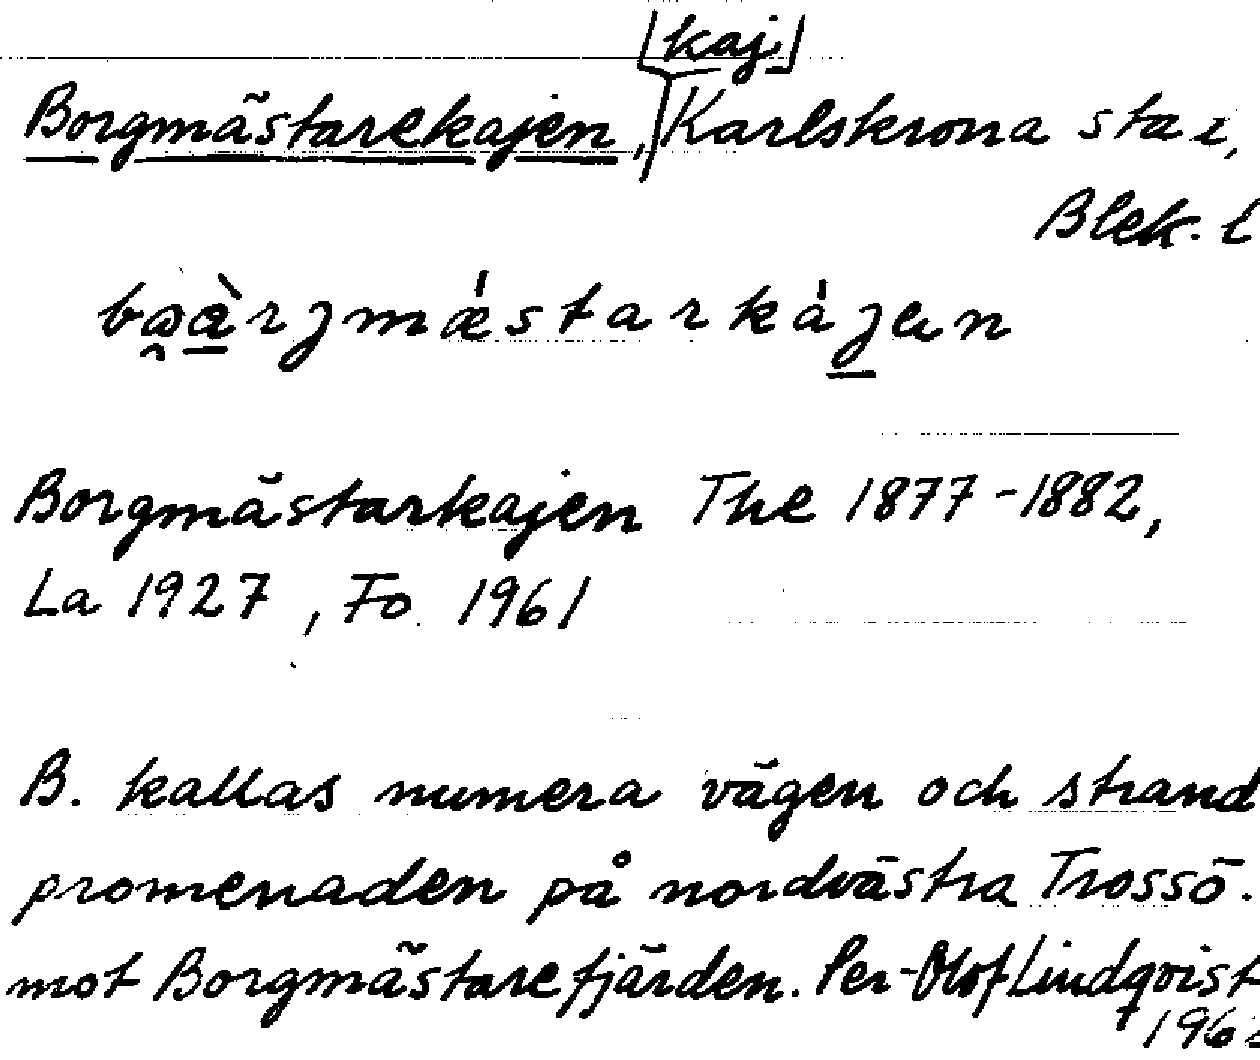 [kaj]
Borgmästarekajen, Karlskrona sta
Blek. l
Borgmästarkajen The 1877-1882,
La 1927, Fo. 1961
B. kallas numera vägen och strand
promenaden på nordvästra Trossö.
mot Borgmästarefjärden. Per-Olof Lindqvist